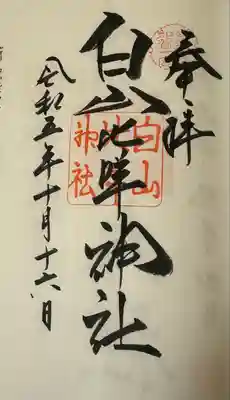 奉拝
白山比咩神社
令和五年十月十六日
白山
神社